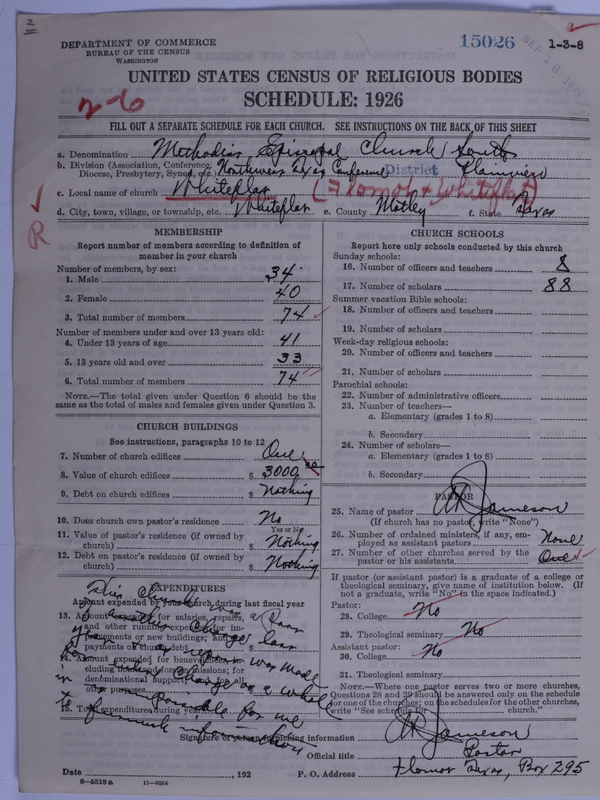 DEPARTMENT OF COMMERCE
BUREAU OF THE CENSUS
WASHINGTON
15026
SEP 10 1928
1-3-8
UNITED STATES CENSUS OF RELIGIOUS BODIES
SCHEDULE: 1926
2-6
FILL OUT A SEPARATE SCHEDULE FOR EACH CHURCH. SEE INSTRUCTIONS ON THE BACK OF THIS SHEET
a. Denomination Methodist Episcopal Church South
b. Division (Association, Conference, Northwest Texas Conference District Plainview
Diocese, Presbytery, Synod, etc.)
c. Local name of church Whiteflat (Flomot & Whiteflat)
d. City, town, village, or township, etc. Whiteflat e. County Motley f. State Texas
R
MEMBERSHIP
Report number of members according to definition of
member in your church
Number of members, by sex:
1. Male 34
2. Female 40
3. Total number of members 74
Number of members under and over 13 years old:
4. Under 13 years of age 41
5. 13 years old and over 33
6. Total number of members 74
NOTE.—The total given under Question 6 should be the
same as the total of males and females given under Question 3.
CHURCH BUILDINGS
See instructions, paragraphs 10 to 12
7. Number of church edifices One
8. Value of church edifices $ 3000 00
9. Debt on church edifices $ Nothing
10. Does church own pastor's residence No
Yes or No
11. Value of pastor's residence (if owned by
church) $ Nothing
12. Debt on pastor's residence (if owned by
church) $ Nothing
EXPENDITURES
Amount expended by your church during last fiscal year
13. Amount expended for salaries, repairs,
and other running expenses; for im-
provements or new buildings; and for
payments on church debt
14. Amount expended for benevolences, in-
cluding home and foreign missions; for
denominational support; and for all
other purposes
15. Total expenditures during year
This church was
year
report was made
charge as a whole
possible for me
to furnish information
CHURCH SCHOOLS
Report here only schools conducted by this church
Sunday schools:
16. Number of officers and teachers 8
17. Number of scholars 88
Summer vacation Bible schools:
18. Number of officers and teachers
19. Number of scholars
Week-day religious schools:
20. Number of officers and teachers
21. Number of scholars
Parochial schools:
22. Number of administrative officers
23. Number of teachers—
a. Elementary (grades 1 to 8)
b. Secondary
24. Number of scholars—
a. Elementary (grades 1 to 8)
b. Secondary
PASTOR
25. Name of pastor Jameson
(If church has no pastor, write "None")
26. Number of ordained ministers, if any, em-
ployed as assistant pastors None
27. Number of other churches served by the
pastor or his assistants One
If pastor (or assistant pastor) is a graduate of a college or
theological seminary, give name of institution below. (If
not a graduate, write "No" in the space indicated.)
Pastor:
28. College No
29. Theological seminary No
Assistant pastor:
30. College No
31. Theological seminary
NOTE.—Where one pastor serves two or more churches,
Questions 28 and 29 should be answered only on the schedule
for one of the churches; on the schedules for the other churches,
write "See schedule for church."
Signature of person furnishing information Jameson
Official title Pastor
Date , 192
P. O. Address Flomot Texas, Box 295
8—5518a 11—9004